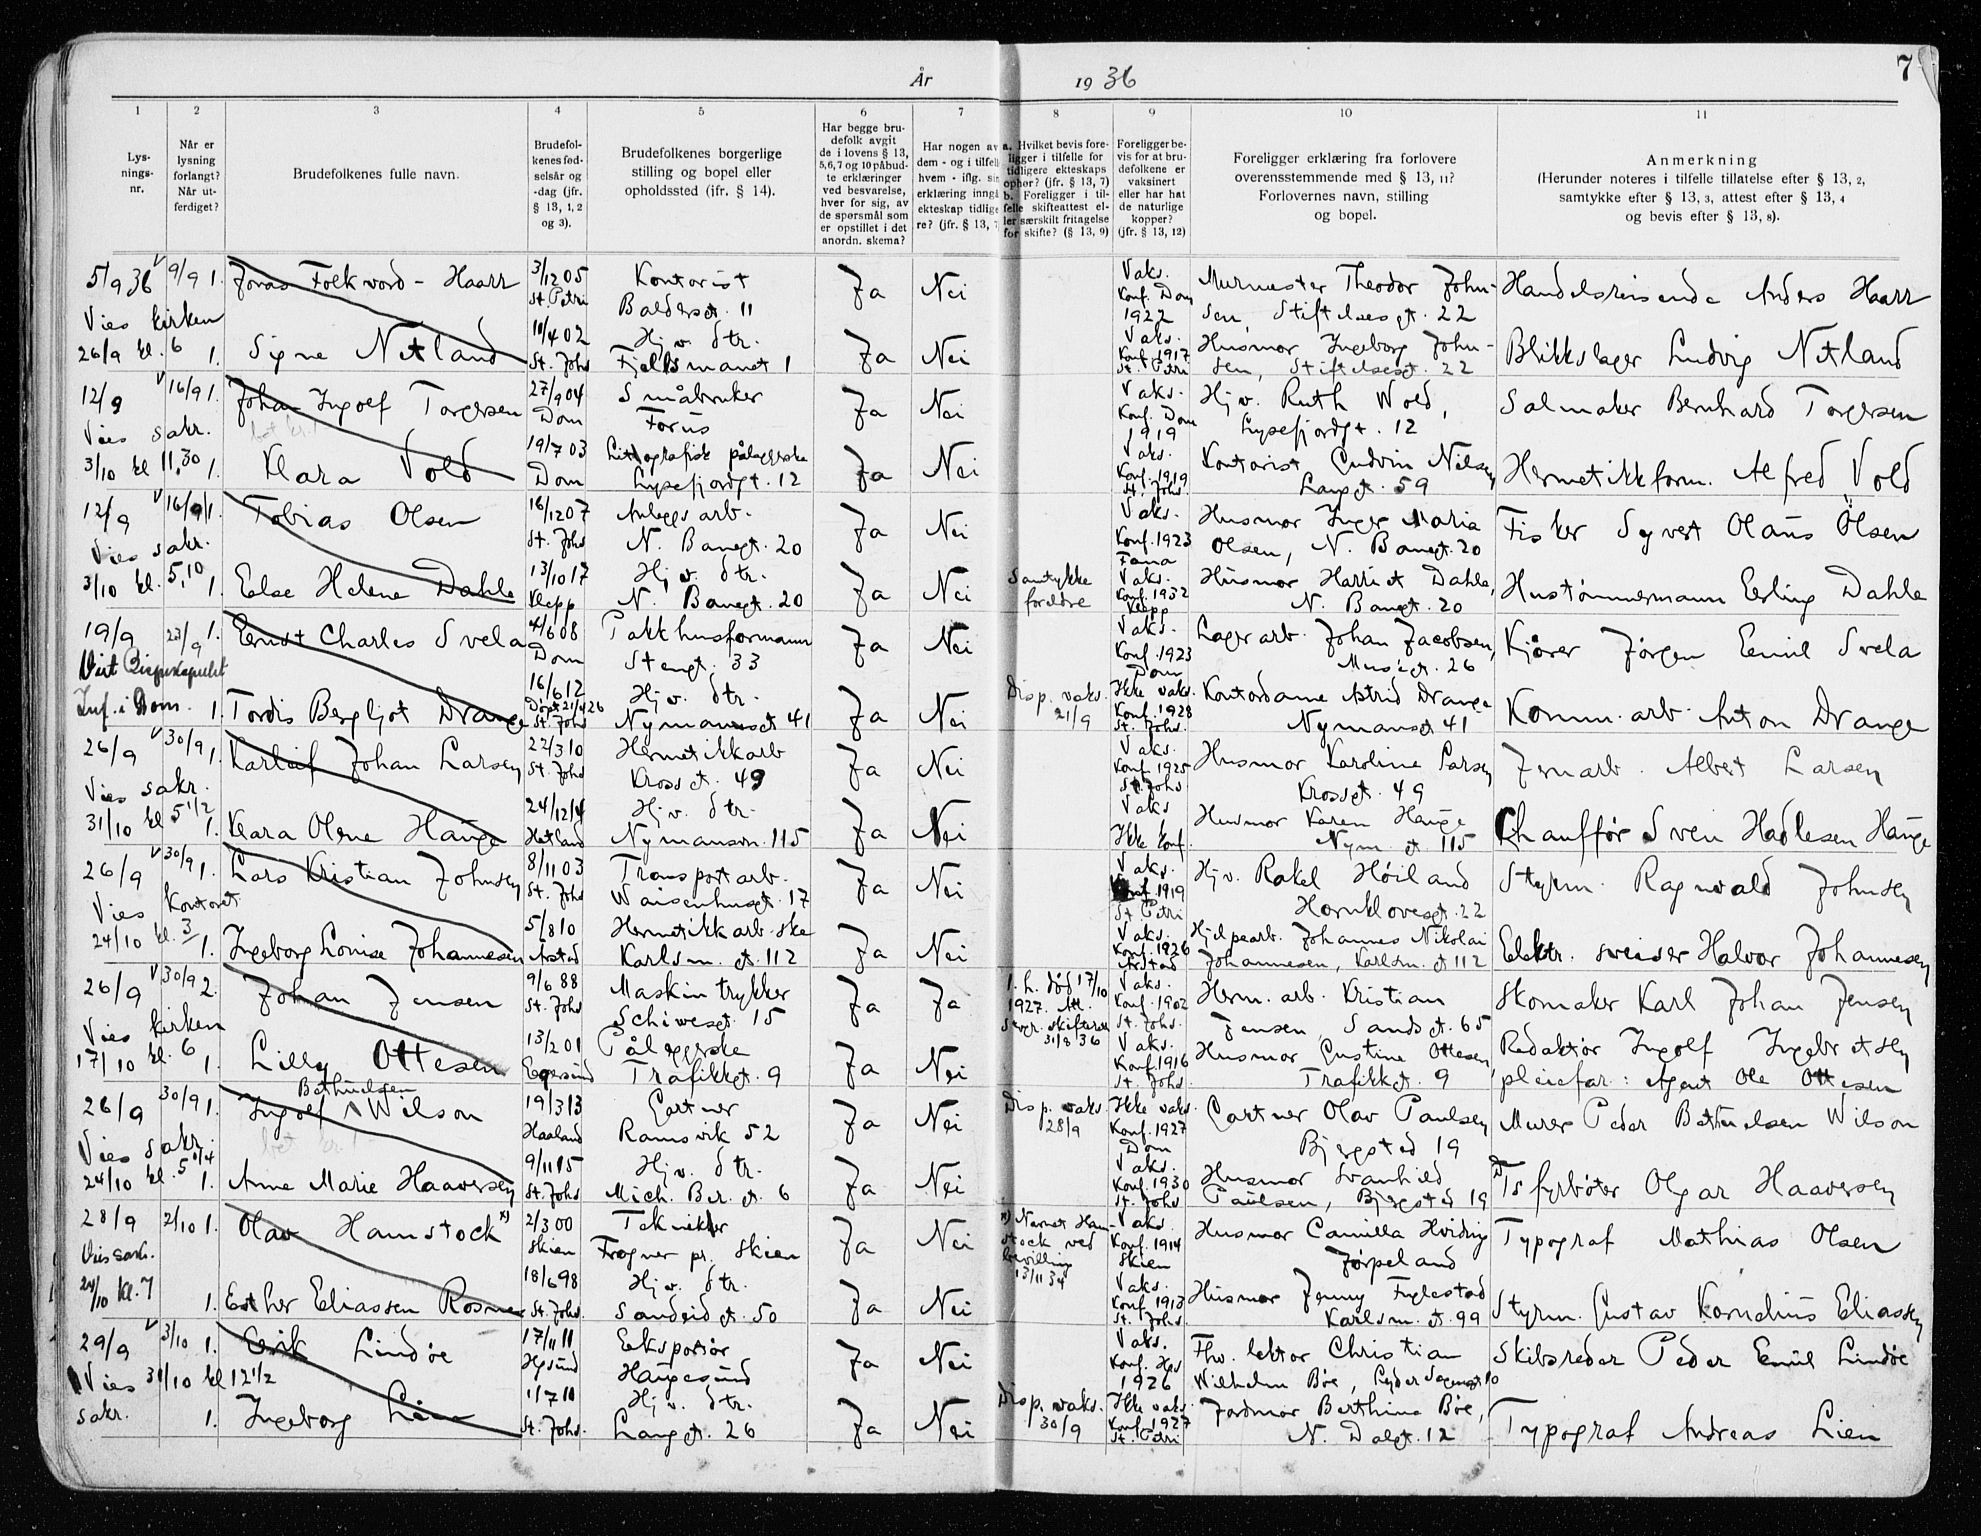 År 1936
7
1 2 3 4 5 6 7 8 9 10 11
Lys-
nings-
nr.
Når er
lysning
forlangt?
Når ut-
ferdiget?
Brudefolkenes fulle navn.
Brudefol-
kenes fød-
selsår og
-dag (jfr.
§ 13, 1, 2
og 3).
Brudefolkenes borgerlige
stilling og bopel eller
opholdssted (ifr. § 14).
Har begge bru-
defolk avgit
de i lovens § 13,
5,6,7 og 10 påbud-
te erklæringer
ved besvarelse,
hver for sig, av
de spørsmål som
er opstillet i det
anordn. skema?
Har nogen av
dem - og i tilfelle
hvem - iflg. sin
erklæring inngå
ekteskap tidlige
re? (jfr. § 13, 7
a. Hvilket bevis fore-
ligger i tilfelle for
tidligere ekteskaps
ophør? (jfr. § 13, 7)
b. Foreligger i til-
felle skifteattest el-
ler særskilt fritagelse
for skifte? (§ 13, 9)
Foreligger be-
vis for at bru-
defolkene er
vaksinert
eller har hat
de naturlige
kopper?
(jfr. § 13, 12)
Foreligger erklæring fra forlovere
overensstemmende med § 13, 11?
Forlovernes navn, stilling
og bopel.
Anmerkning
(Herunder noteres i tilfelle tillatelse efter § 13, 2,
samtykke efter § 13, 3, attest efter § 13, 4
og bevis efter § 13, 8).
5/9 36 9/9 1. Jonas Folkvord - Haarr 3/12 05 St. Petri Kontorist Baldersgt. 11 Ja Nei Vaks. Konf. Dom 1922 Murmester Theodor John-
sen, Stiftelsesgt. 22 Handelsreisende Anders Haarr
Vies kirken
26/9 kl. 6 1. Signe Netland 11/4 02 St. Johs Hj.v. dtr. Fjellsmauet 1 Ja Nei Vaks. Konf. 1917 St. Petri Husmor Ingeborg John-
sen, Stiftelsesgt. 22 Blikkslager Ludvig Netland
12/9 16/9 1. Johan Ingolf Torgersen 27/9 04 Dom Småbruker Forus Ja Nei Vaks. Konf. Dom 1919 Hj.v. Ruth Wold,
Lysefjordgt. 12 Salmaker Bernhard Torgersen
Vies sakr.
3/10 kl 11,30 1. Klara Vold 19/7 03 Dom Litografisk påleggerske Lysefjordgt. 12 Ja Nei Vaks. Konf. 1919 St. Johs. Kontorist Gudvin Nilsen
Langgt. 59 Hermetikkform. Alfred Vold
12/9 16/9 1. Tobias Olsen 16/12 07 St. Johs Anleggsarb. N. Banegt. 20 Ja Nei Vaks. Konf. 1923 Fana Husmor Inger Maria
Olsen, N. Banegt. 20 Fisker Syvert Olaus Olsen
Vies sakr.
3/10 kl. 5,10 1. Else Helene Dahle 13/10 17 Klepp Hj.v. dtr. N. Banegt. 20 Ja Nei Samtykke foreldre Vaks. Konf. 1932 Klepp Husmor Harriet Dahle,
N. Banegt. 20 Hustømmermann Erling Dahle
19/9 23/9 1. Ernst Charles Svela 4/6 08 Dom Pakkhusformann Stengt. 33 Ja Nei Vaks. Konf. 1923 Dom Lagerarb. Johan Jacobsen,
Muségt. 26 Kjører Jørgen Emil Svela
Viet Bispekapellet
Inf. i Dom. 1. Tordis Bergljot Drange 16/6 12 Døpt 21/4 26 St. Johs Hj.v. dtr. Nymansgt 41 Ja Nei Disp. vaks. 21/9 Ikke vaks. Konf. 1928 St. Johs. Kontordame Astrid Drange
Nymansgt 41 Komm. arb. Anton Drange
26/9 30/9 1. Karleif Johan Larsen 22/3 10 St. Johs Hermetikkarb Krossgt. 49 Ja Nei Vaks. Konf. 1925 St. Johs Husmor Karoline Larsen
Krossgt. 49 Jernarb. Albert Larsen
Vies sakr.
31/10 kl 5 1/2 1. Klara Olene Hauge 24/12 14 Hetland Hj.v. dtr. Nymansv. 115 Ja Nei Vaks Ikke konf. Husmor Karen Hauge
Nym. gt 115 Chauffør Sven Hadlesen Hauge
26/9 30/9 1. Lars Kristian Johnsen 8/11 03 St. Johs Transportarb. Waisenhusgt. 17 Ja Nei Vaks. Konf. 1919 St. Petri Hj.v. Rakel Høiland
Hornklovesgt. 22 Styrm. Ragnvald Johnsen
Vies kontoret
24/10 kl. 3 1. Ingeborg Louise Johannesen 5/8 10 Årstad Hermetikkarb.ske Karlsm. gt. 112 Ja Nei Vaks. Konf. 1926 Årstad Hjelpearb. Johannes Nikolai
Johannesen, Karlsm. gt 112 Elektr. sveiser Halvor Johannesen
26/9 30/9 2. Johan Jensen 9/6 88 St. Johs Maskintrykker Schiwesgt. 15 Ja Ja 1. h. død 17/10 1927. Att. Stvgr. skifterett 31/8 36 Vaks. Konf. 1902 St. Johs. Herm. arb. Kristian
Jensen, Sandsgt. 65 Skomaker Karl Johan Jensen
Vies kirken
17/10 kl. 6 1. Lilly Ottesen 13/2 01 Egersund Påleggerske Trafikkgt. 9 Ja Nei Vaks. Konf. 1916 St. Johs. Husmor Gustine Ottesen,
Trafikkgt. 9 Redaktør Ingolf Ingebretsen
pleiefar: Agent Ole Ottesen
26/9 30/9 1. Ingolf Bethuelsen Wilson 19/3 13 Haaland Gartner Ramsvik 52 Ja Nei Disp. vaks. 28/9 Ikke vaks. Konf. 1927 Dom Gartner Olav Paulsen
Bjergsted 19 Murer Peder Bethuelsen Wilson
Vies sakr.
24/10 kl. 5 1/4 1. Anna Marie Haaversen 9/11 15 St. Johs Hj.v. dtr. Mich. Ber. gt. 6 Ja Nei Vaks. Konf. 1930 St. Johs Husmor Svanhild
Paulsen, Bjergsted 19 Dsfyrbøter Olgar Haaversen
28/9 2/10 1. Olav Hamstock x) 2/3 00 Skien Tekniker Frogner pr. Skien Ja Nei x) Navnet Ham-
stock ved bevilling 13/11 34 Vaks Konf. 1914 Skien Husmor Camilla Hviding
Jørpeland Typograf Mathias Olsen
Vies sakr.
24/10 kl. 7 1. Esther Eliassen Rosnes 18/6 98 St. Johs. Hj.v. dtr. Sandeidgt. 50 Ja Nei Vaks. Konf. 1913 St. Johs. Husmor Jenny Fuglestad
Karlsm. gt. 99 Styrm. Gustav Kornelius Eliassen
29/9 3/10 1. Erik Lindøe 17/11 11 Hgsund Eksportør Haugesund Ja Nei Vaks. Konf. Hgs 1926 Fhv. lektor Christian
Wilhelm Bøe, Peder 10 Skibsreder Peder Emil Lindøe
Vies 31/10 kl 12 1/2
sakr. 1. Ingeborg Lien 1/7 10 St. Johs. Hj.v. dtr. Langgt. 26 Ja Nei Disp. vaks. 30/9 Ikke vaks. Konf. 1927 St. Petri Jordmor Berthine Bøe,
N. Dalgt. 12 Typograf Andreas Lien